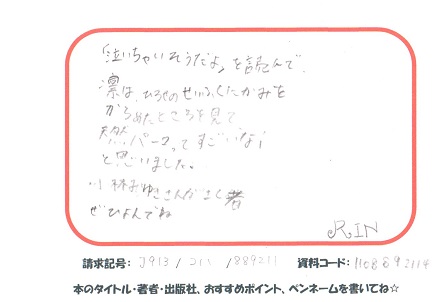 「泣いちゃいそうだよ」を読んで、
凛は、ひろやのせいふくたかみを
からめたところを見て
天然パークってすごいな!
と思いました。
小林みゆきさんがさく者
ぜひよんでね
RIN
請求記号: J913 / コバ / 889211 資料コード: 1108892114
本のタイトル・著者・出版社、おすすめポイント、ペンネームを書いてね☆